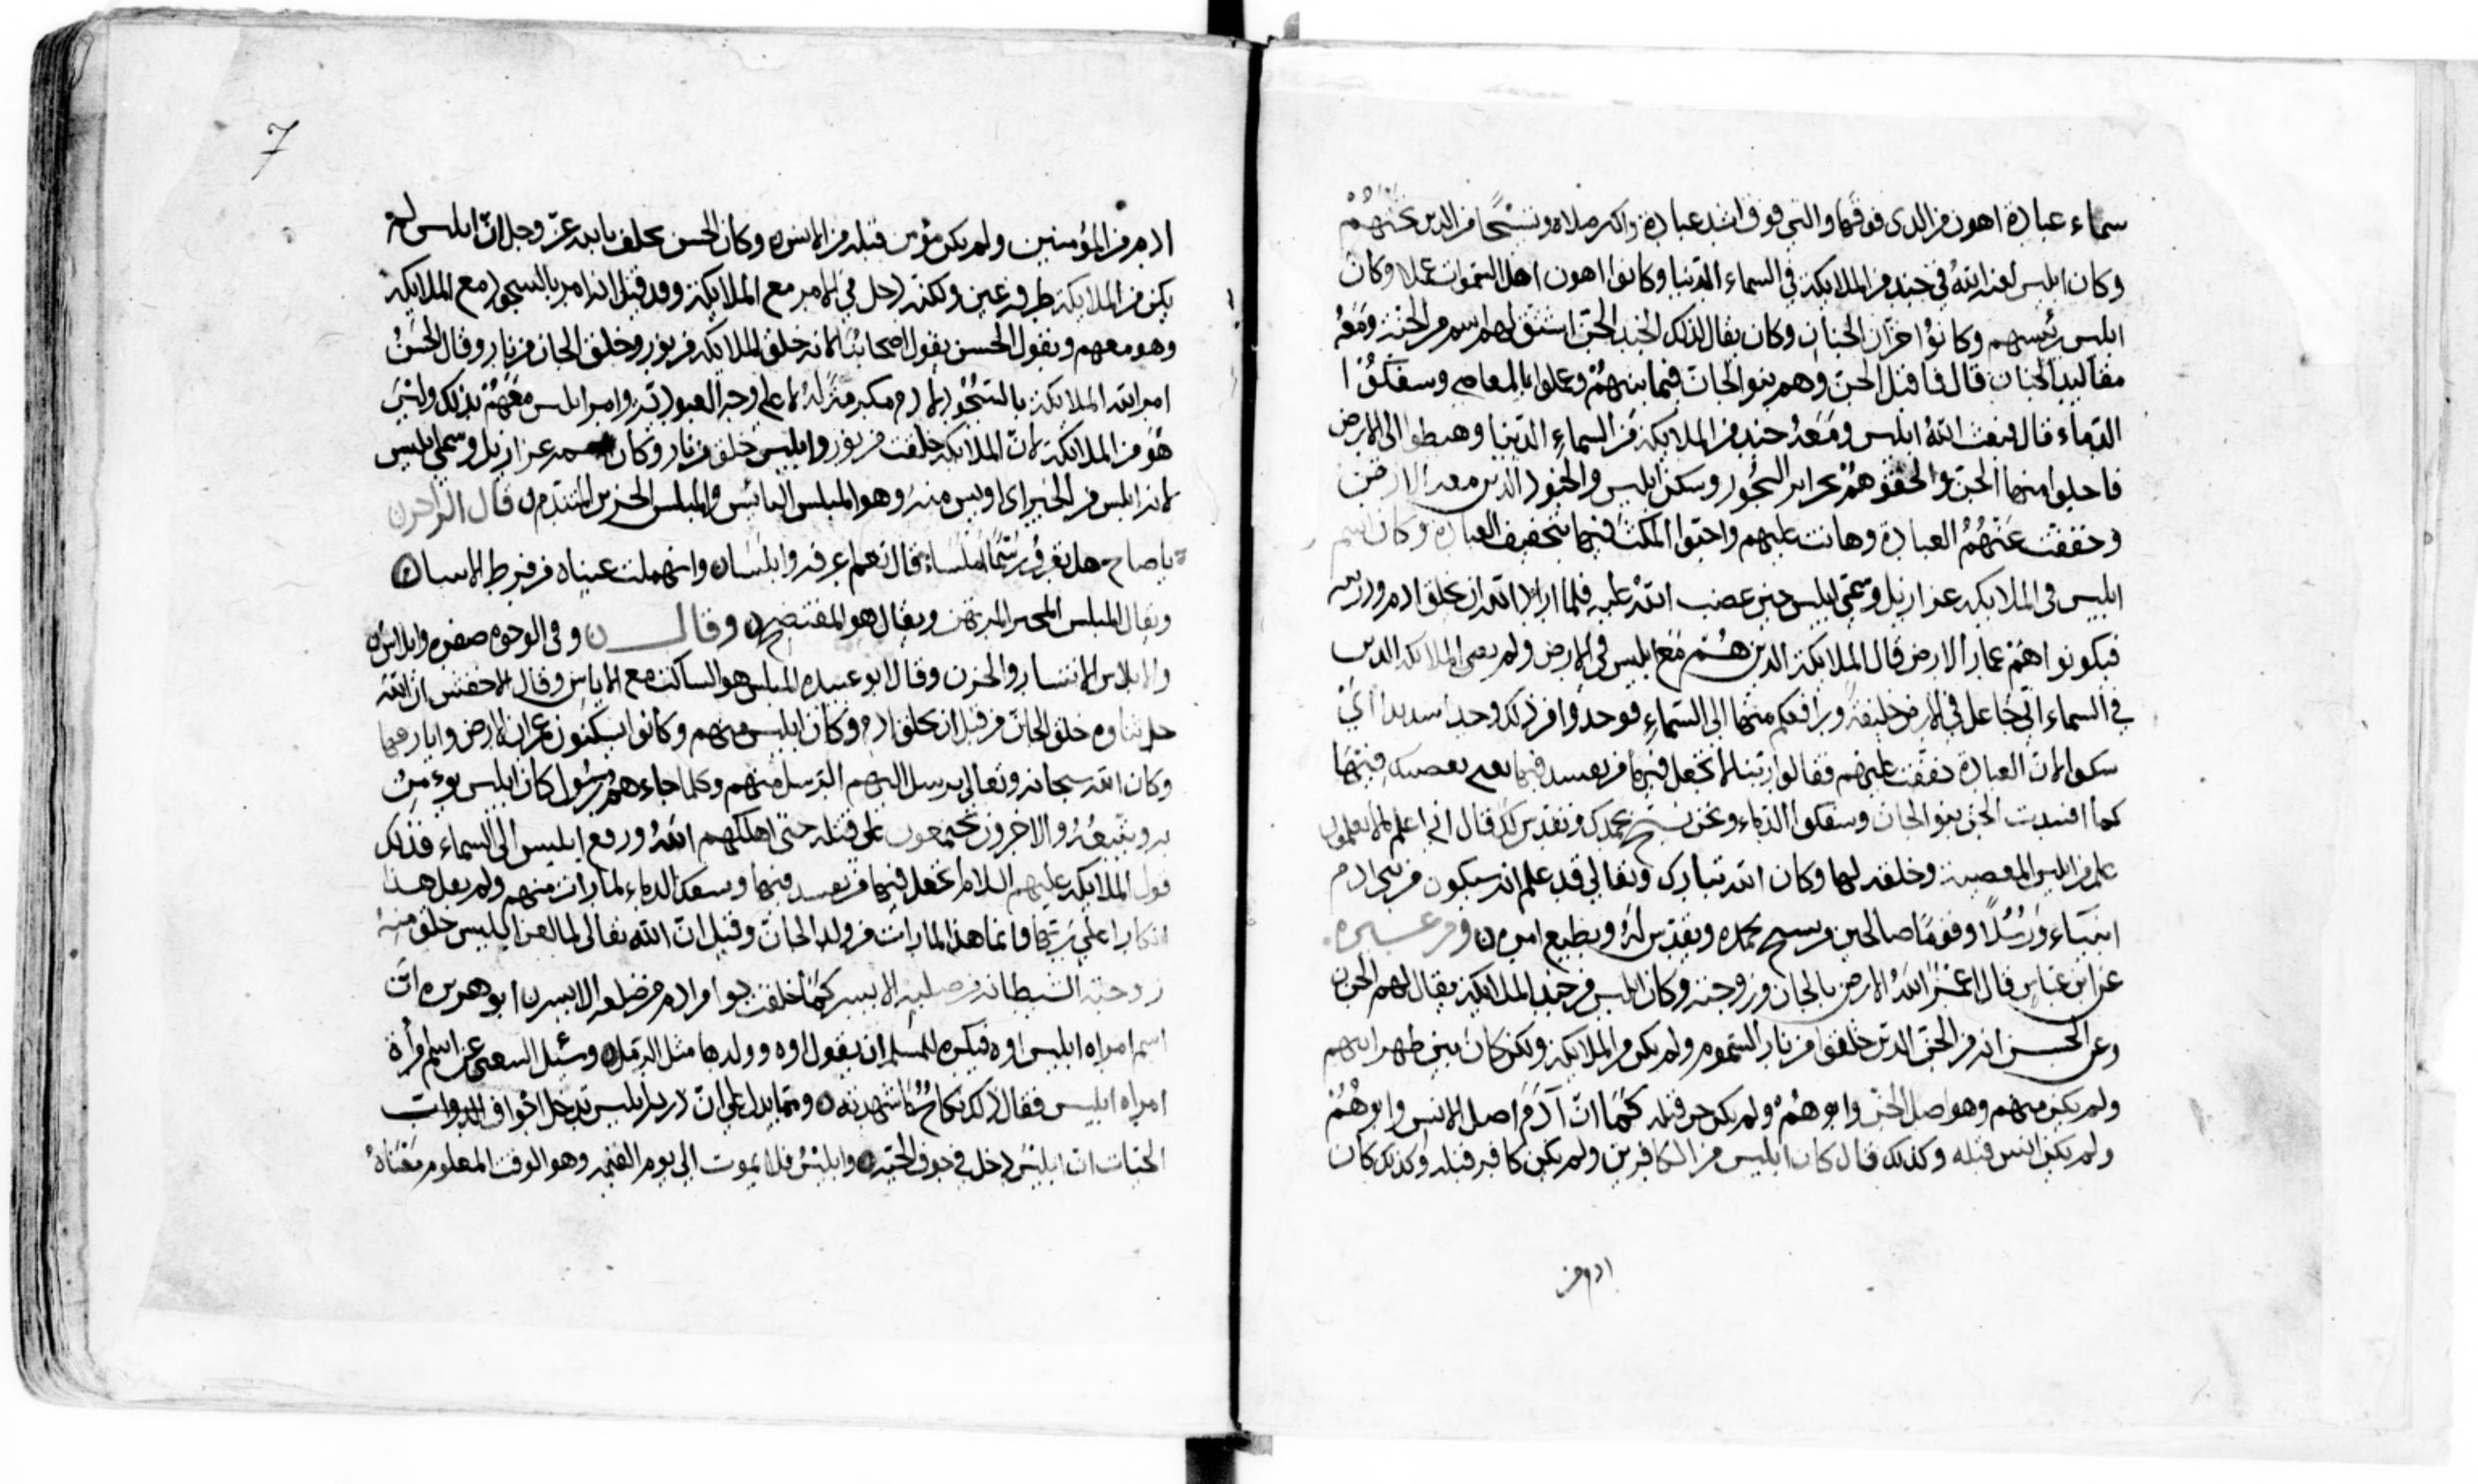 سماء عبادة اهون من الذي فوقها والتي فوق اشد عبادة واكثر صلاة وتسبيحا من الذين تحتهم
وكان ابليس لعنه الله في جند من الملايكة في السماء الدنيا وكانوا اهون اهل السموات عملا وكان
ابليس رئيسهم وكانوا خزان الجنان وكان يقال لذلك الجند الجن اشتق لهم اسم من الجنة ومعه
مقاليد الجنان قال فاقتتل الجن وهم بنو الجان فيما بينهم وعملوا بالمعاصي وسفكوا
الدماء قال فبعث الله ابليس ومعه جند من الملايكة من السماء الدنيا وهبطوا الى الارض
فاجلوا منها الجن والحقوهم بجزاير البحور وسكن ابليس والجنود الذين معه الارض
وخففت عنهم العبادة وهانت عليهم واحبوا المكث فيها لتخفيف العبادة وكان اسم
ابليس في الملايكة عزازيل وسمي ابليس حين غضب الله عليه فلما اراد الله ان يخلق ادم وذريته
فيكونوا هم عمار الارض قال للملايكة الذين هم مع ابليس في الارض ولم يعن الملايكة الذين
في السماء اني جاعل في الارض خليفة ورافعكم منها الى السماء فوجدوا من ذلك وجدا شديدا اي
سكوا لان العبادة خففت عليهم فقالوا ربنا لم تجعل فيها من يفسد فيها نعم يعصيك فيها
كما افسدت الجن بنو الجان وسفكوا الدماء ونحن نسبح بحمدك ونقدس لك قال اني اعلم ما لا تعلمون
علم من ابليس المعصية وخلقه لها وكان الله تبارك وتعالى قد علم انه سيكون من بني ادم
انبياء ورسلا وقوما صالحين من يسبح بحمده ويقدس له ويطيع امره ن ومن غيره
عن ابن عباس قال اعمر الله الارض بالجان وزوجته وكان ابليس من جند الملايكة يقال لهم الجن
وعن الحسن انه من الجن الذين خلقوا من نار السموم ولم يكن من الملايكة ولكن كان بين ظهرانيهم
ولم يكن منهم وهو اصل الجن وابوهم ولم يكن جن قبله كما ان آدم اصل الانس وابوهم
ولم يكن انس قبله وكذلك قال كان ابليس من الكافرين ولم يكن كافر قبله وكذلك كان
ادم من
7
ادم من المؤمنين ولم يكن مؤمن قبله من الانس وكان الحسن يحلف بالله عز وجل ان ابليس لم
يكن من الملايكة طرفة عين ولكنه دخل في الامر مع الملايكة وقد قيل انه امر بالسجود مع الملايكة
وهو معهم وبقول الحسن يقول اصحابنا لانه خلق الملايكة من نور وخلق الجان من نار وقال الحسن
امر الله الملايكة بالسجود لادم مكرمة له لا على وجه العبودية وامر ابليس معهم بذلك وليس
هو من الملايكة لان الملايكة خلقت من نور وابليس خلق من نار وكان اسمه عزازيل وسمي ابليس
لانه ابلس من الخير اي اويس منه وهو المبلس اليائس والمبلس الحزين المتندم قال الراجز
يا صاح هل تعرف رسما مكسا قال نعم اعرفه وابلسا وانهملت عيناه من فرط الاسا
ويقال المبلس المتحير المرتهن ويقال هو المفتضح ن وقال وفي الوجوه صفرة وابلاس
والابلاس الانكسار والحزن وقال ابو عبيدة المبلس هو الساكت مع الاياس وقال الاخفش ان الله
جل ثناؤه خلق الجان من قبل ان يخلق ادم وكان ابليس منهم وكانوا يسكنون عمران الارض
وكان الله سبحانه وتعالى يرسل اليهم الرسل منهم وكلما جاءهم رسول كان ابليس يؤمن
به ويتبعه والاخرون يجتمعون على قتله حتى اهلكهم الله ورفع ابليس الى السماء فذلك
قول الملايكة عليهم السلام اتجعل فيها من يفسد فيها ويسفك الدماء لما رات منهم ولم يقل هذا
انكارا على ربها فانما هذا لما رات من ولد الجان وقيل ان الله تعالى لما لعن ابليس خلق منه
زوجته الشيطانة من صلبه الايسر كما خلقت حوا من ادم من ضلعه الايسر ن ابو هريرة ان
اسم امراه ابليس اوه فيكره للمسلم ان يقول اوه وولدها مثل الرمل وسئل الشعبي عن اسم امرأة
امراه ابليس فقال ذلك نكاح ما شهدته ن ومما يدل على ان ذرية ابليس تدخل اجواف الدواب
الحيات ان ابليس دخل في جوف الحية وابليس فلا يموت الى يوم القيمة وهو الوقت المعلوم معناه